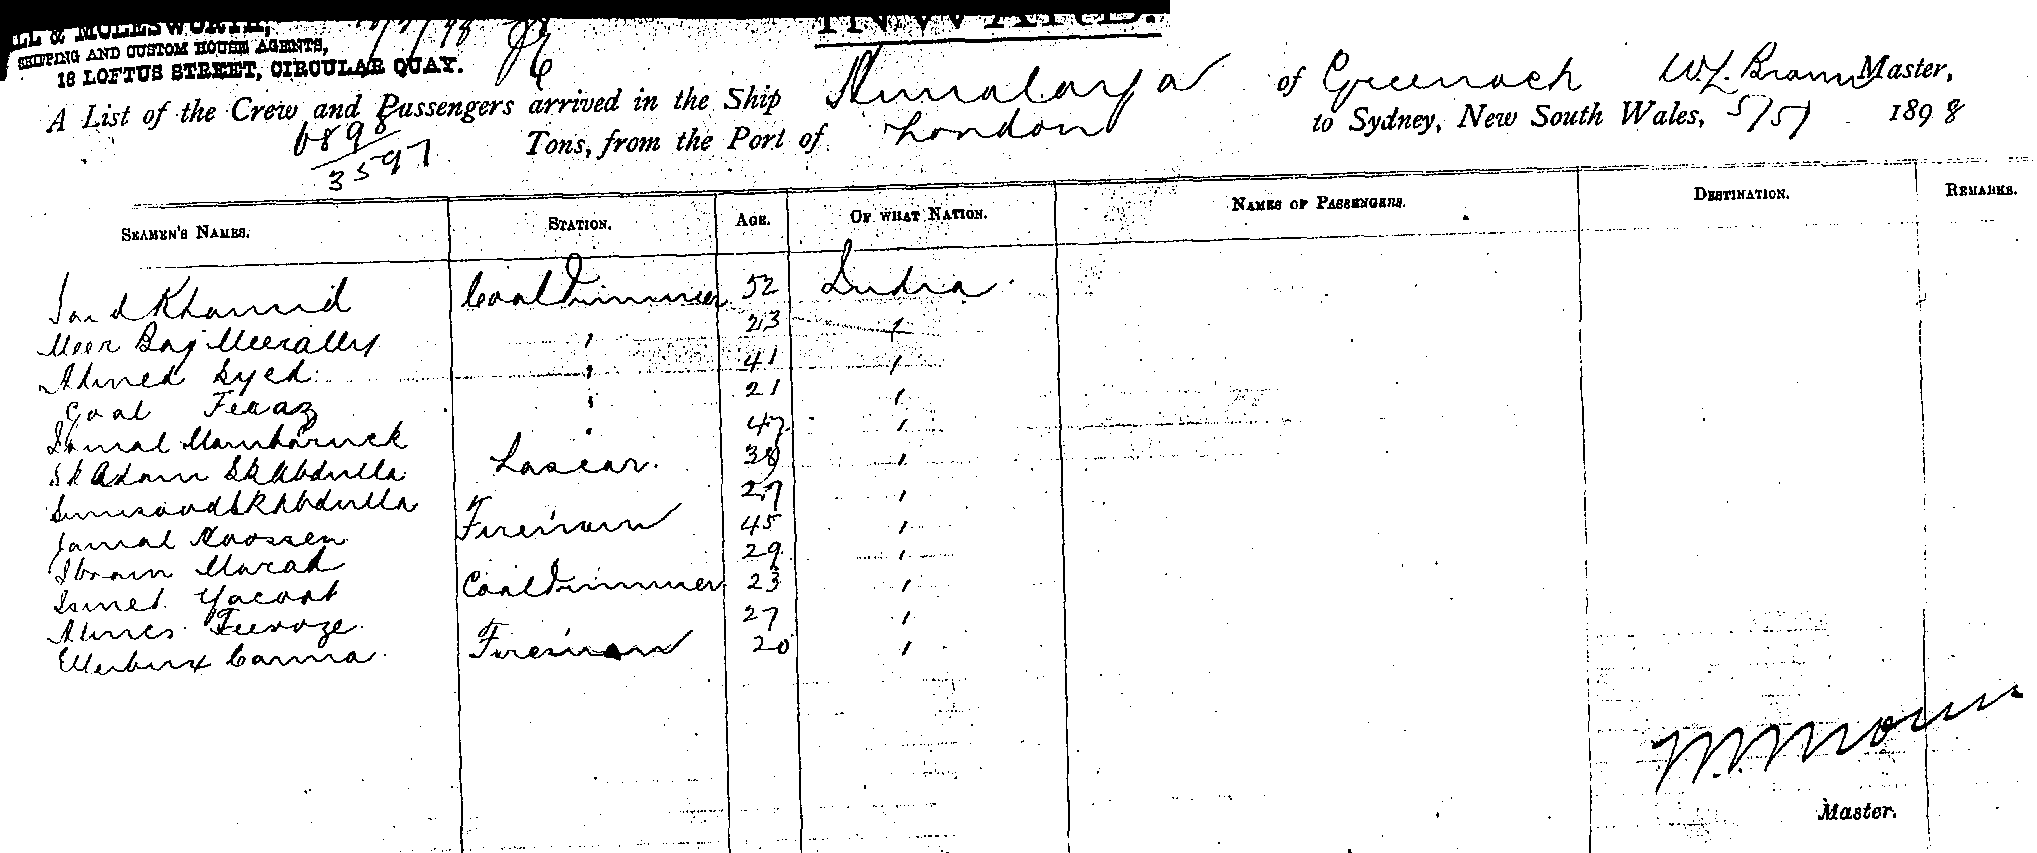 INWARD.
LL & MOLESWORTH,
SHIPPING AND CUSTOM HOUSE AGENTS,
18 LOFTUS STREET, CIRCULAR QUAY.
A List of the Crew and Passengers arrived in the Ship Himalaya of Greenock W.L. Brown Master,
6898
3597
Tons, from the Port of London to Sydney, New South Wales, 5/5/ 1898
SEAMEN'S NAMES. STATION. AGE. OF WHAT NATION. NAMES OF PASSENGERS. DESTINATION. REMARKS.
Khamid Coal Trimmer 52 India
Meer Meerally " 23 "
Ahmed Syed " 41 "
Goal Feraz " 21 "
Mombaruck " "
Sk Adam Sk Abdulla Lascar. 38 "
Sk Abdulla 27 "
Jamal Hoossen Fireman 45 "
Ibraim Morad 29 "
Ismel Yacoob Coal Trimmer 23 "
Feeroze 27 "
Canna Fireman 20 "
Master.